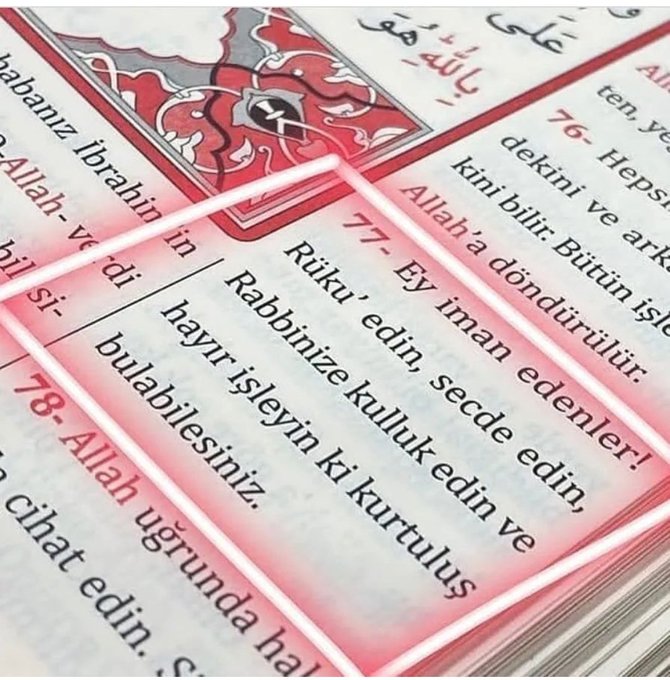 عَلَى
بِاللّٰهِ هُوَ
76- Heps
dekini ve ark
kini bilir. Bütün işl
Allah'a döndürülür.
77- Ey iman edenler!
Rüku' edin, secde edin,
Rabbinize kulluk edin ve
hayır işleyin ki kurtuluş
bulabilesiniz.
78- Allah uğrunda hak
cihat edin.
babanız İbrahim'in
-Allah- verdi